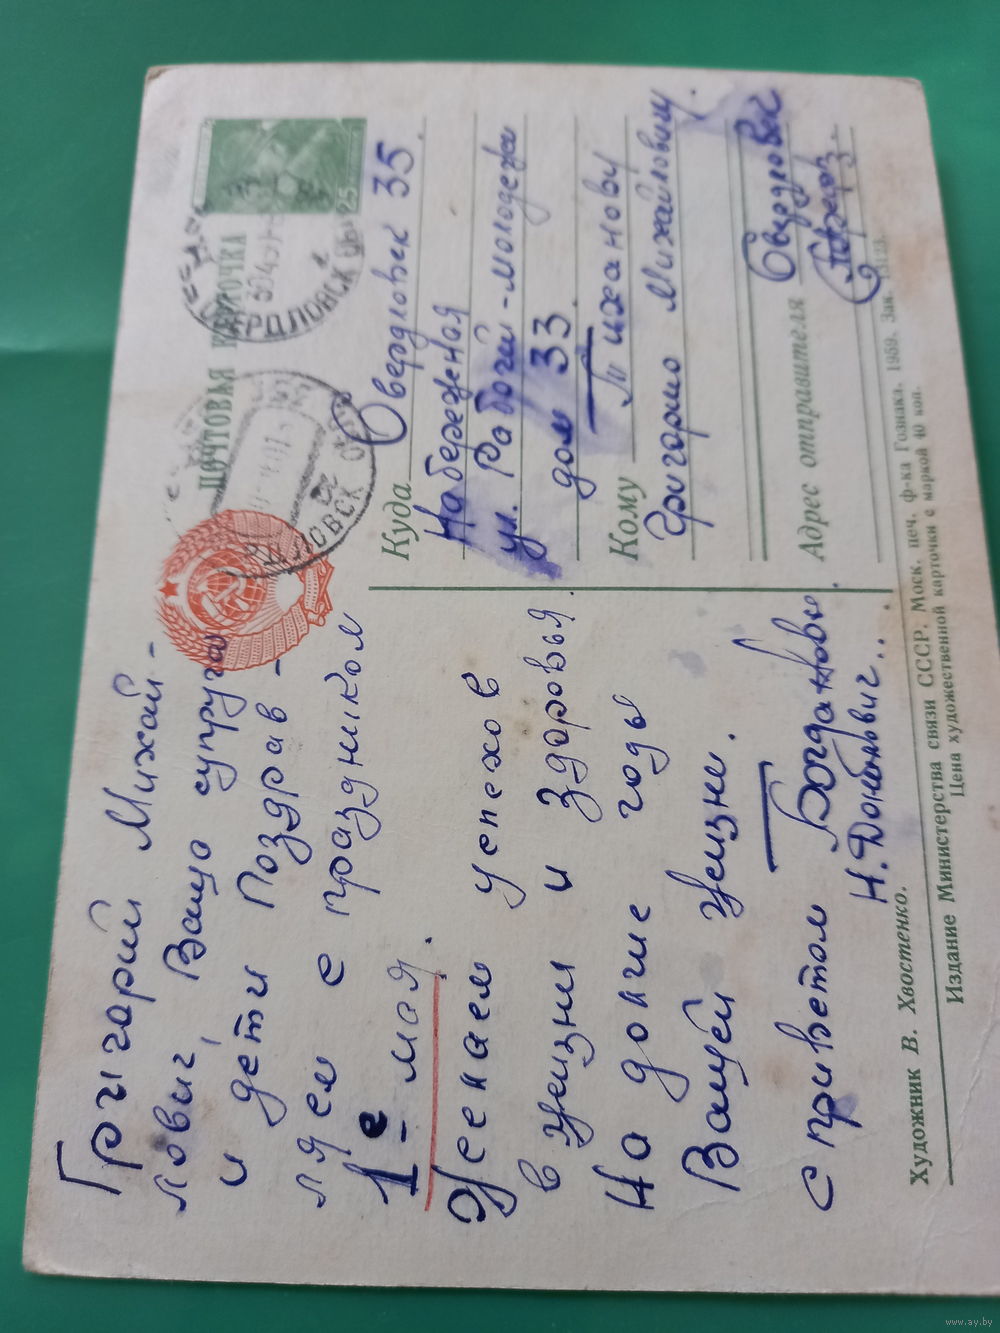 Григорий Михай-
лович, Ваша супруга
и дети Поздрав-
ляем с праздником
1-е мая.
Желаем успехов
в жизни и здоровья.
На долгие годы
Вашей жизни.
с приветом Богдановы.
ПОЧТОВАЯ КАРТОЧКА
25
Куда Свердловск 35.
Набережная
ул. Рабочей-молодежи
дом 33
Кому Тиханову
Григорию Михайловичу.
Адрес отправителя Свердловск
Художник В. Хвостенко.
Издание Министерства связи СССР. Моск. печ. ф-ка Гознака. 1959. Зак.
Цена художественной карточки с маркой 40 коп.
www.ay.by